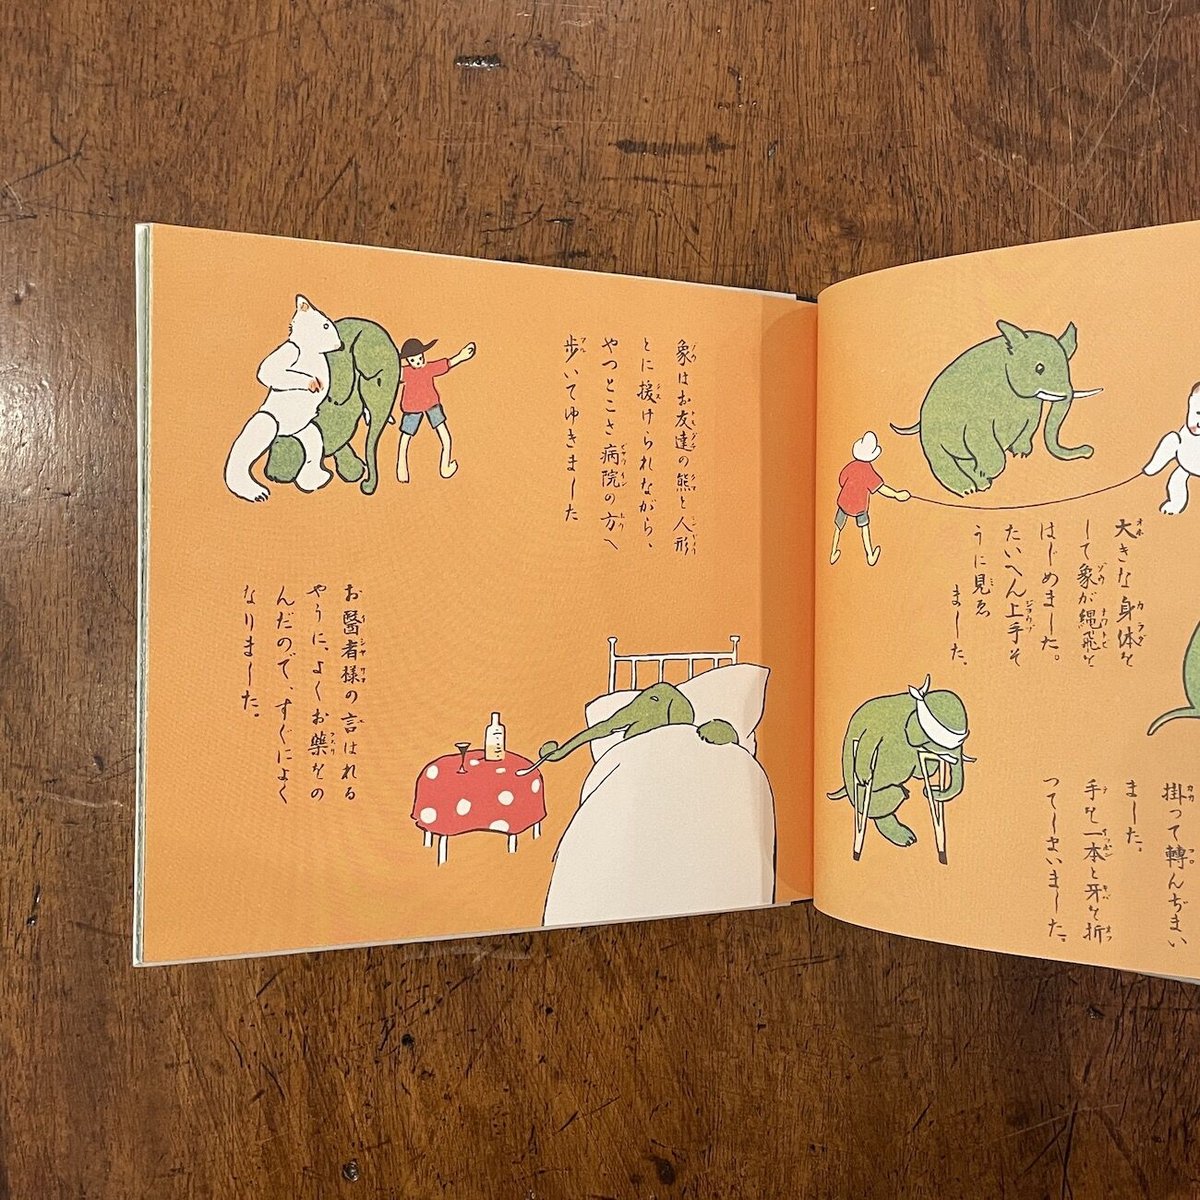 大きな身体を
して象が縄飛を
はじめました。
たいへん上手そ
うに見ゑ
ました。
掛つて轉んぢまい
ました。
手を一本と牙を折
つてしまいました。
象はお友達の熊と人形
とに援けられながら、
やつとこさ病院の方へ
歩いてゆきました
お醫者様の言はれる
やうに、よくお藥をの
んだので、すぐによく
なりました。